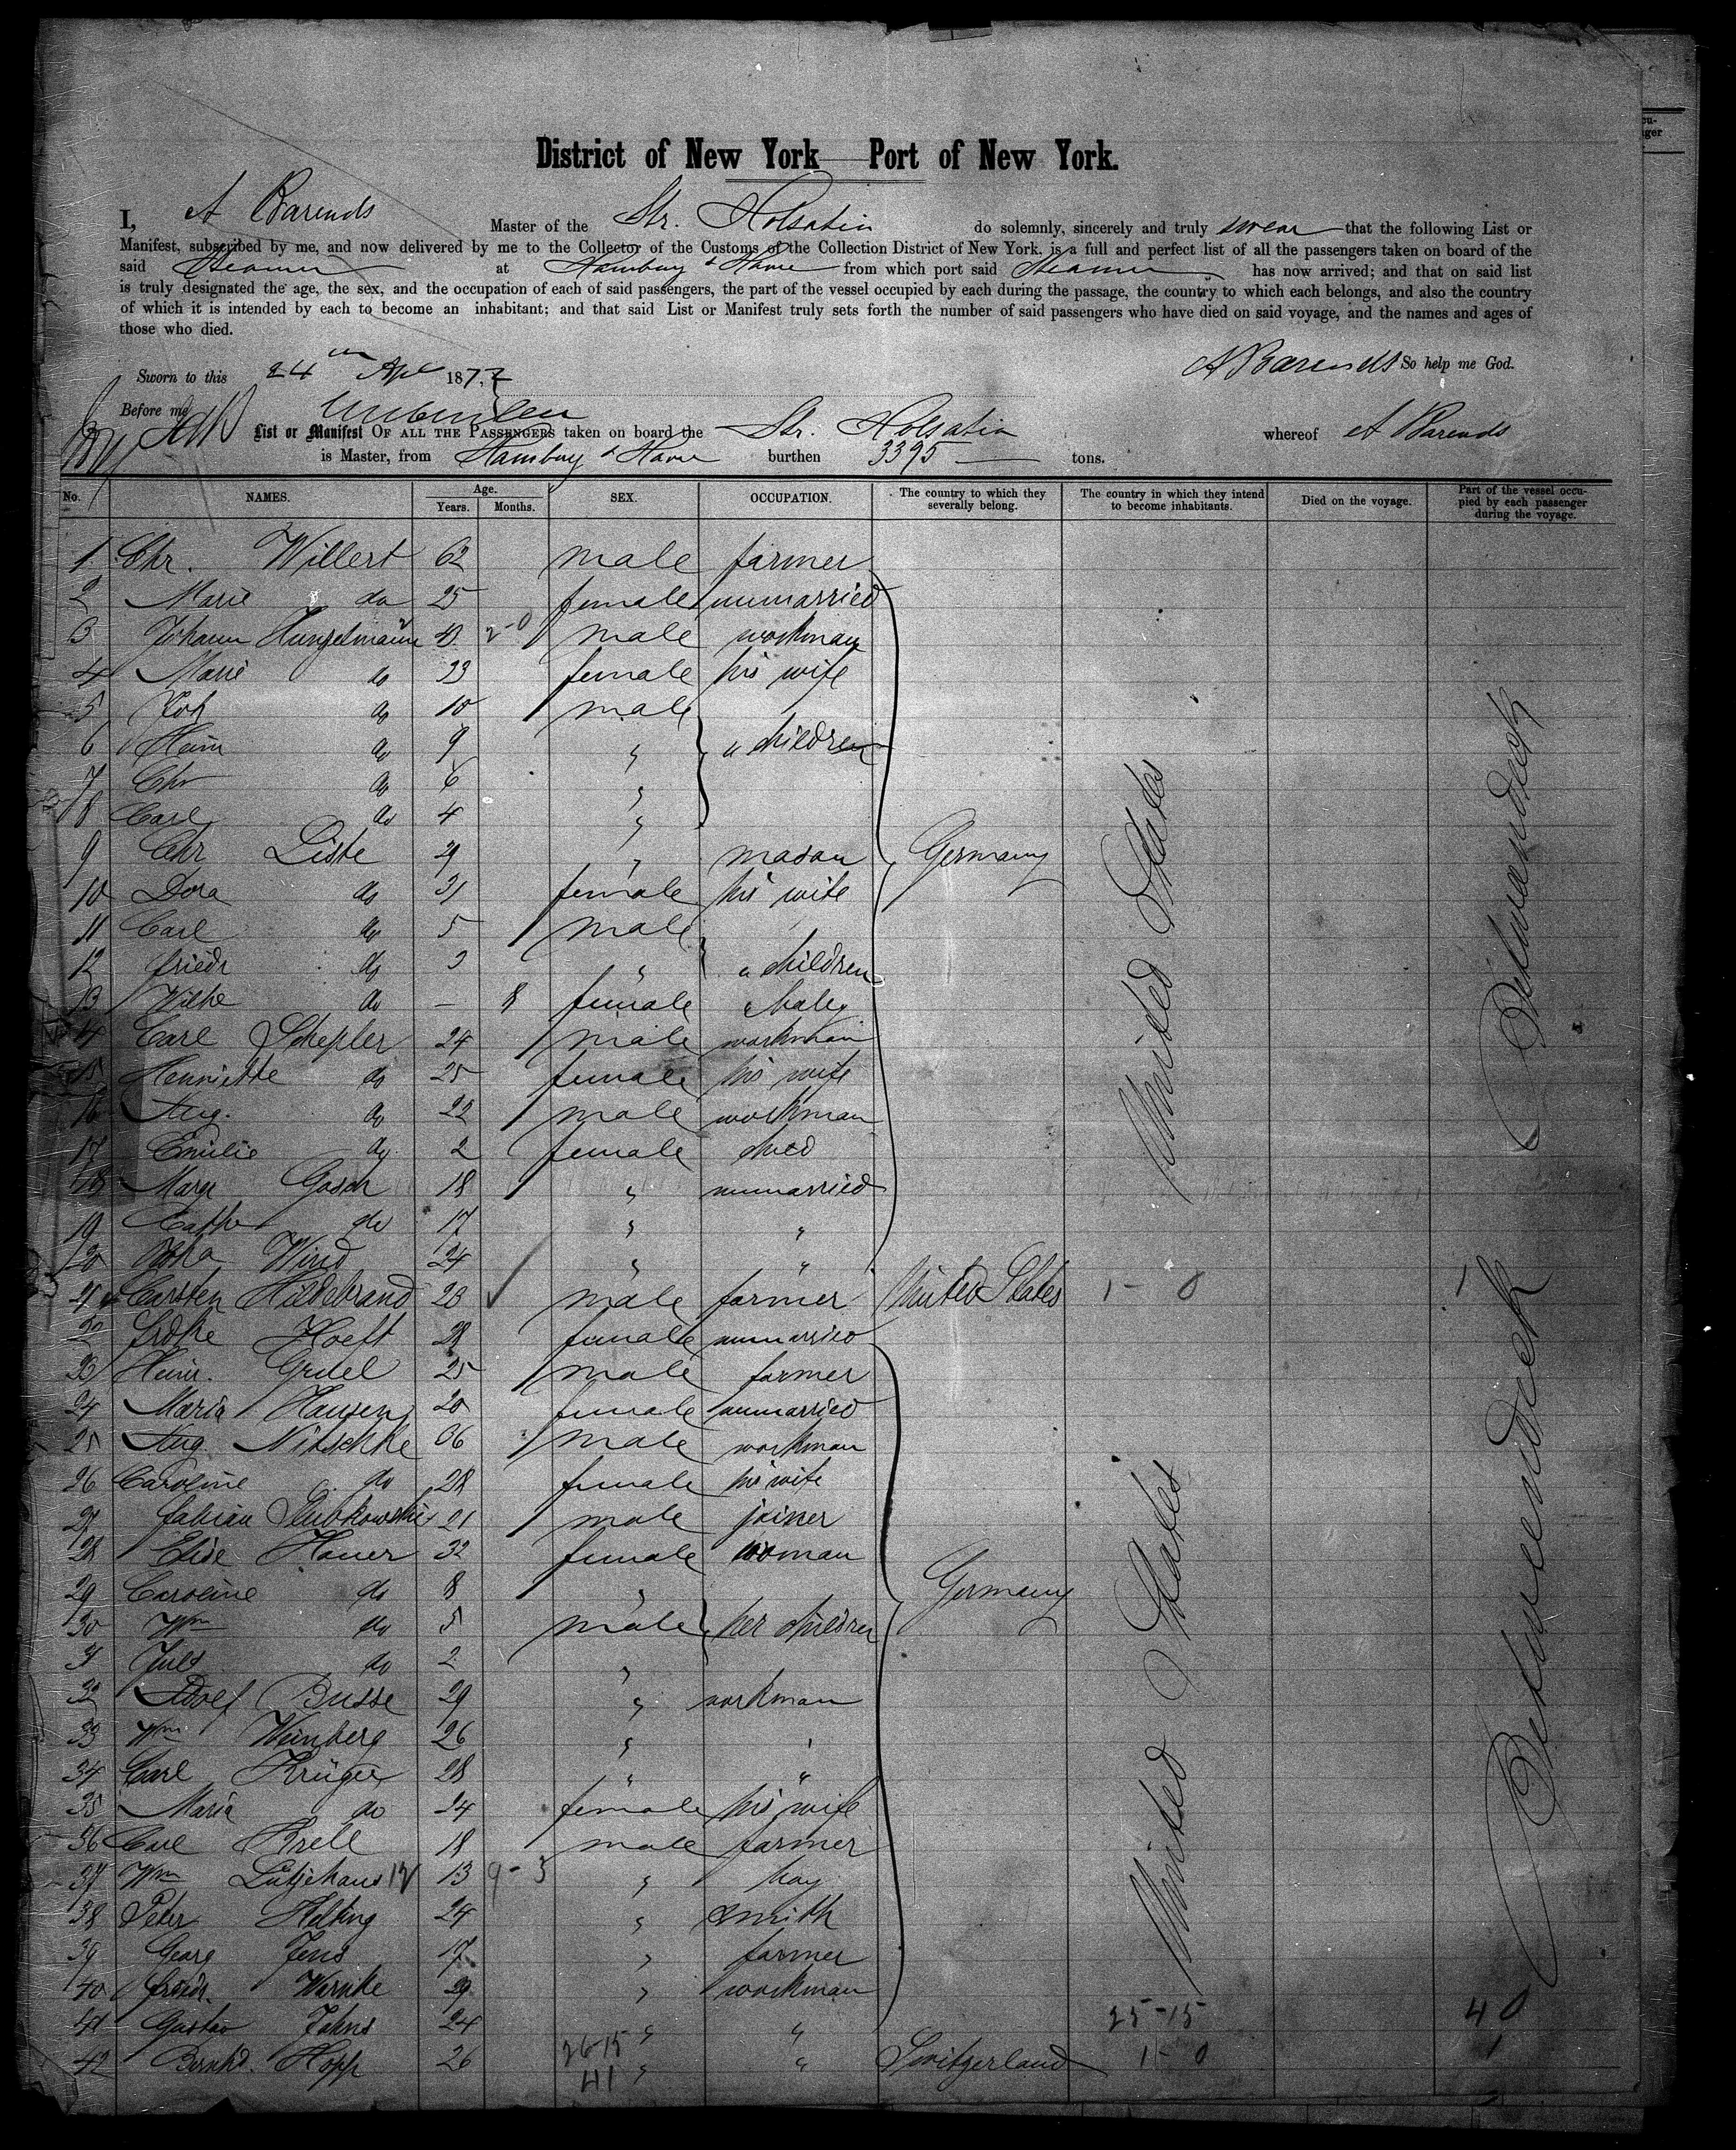 District of New York—Port of New York.
I, A Barends Master of the Str. Holsatia do solemnly, sincerely and truly swear that the following List or
Manifest, subscribed by me, and now delivered by me to the Collector of the Customs of the Collection District of New York, is a full and perfect list of all the passengers taken on board of the
said Steamer at Hamburg & Havre from which port said Steamer has now arrived; and that on said list
is truly designated the age, the sex, and the occupation of each of said passengers, the part of the vessel occupied by each during the passage, the country to which each belongs, and also the country
of which it is intended by each to become an inhabitant; and that said List or Manifest truly sets forth the number of said passengers who have died on said voyage, and the names and ages of
those who died.
A Barends So help me God.
Sworn to this 24th Apl 1872
Before me
List or Manifest OF ALL THE PASSENGERS taken on board the Str. Holsatia whereof A Barends
is Master, from Hamburg & Havre burthen 3395 tons.
No. NAMES. Age. Years. Months. SEX. OCCUPATION. The country to which they severally belong. The country in which they intend to become inhabitants. Died on the voyage. Part of the vessel occupied by each passenger during the voyage.
1 Chr. Willert 62 male farmer
2 Marie do 25 female unmarried
3 Johann Hungelmann male workman
4 Marie do 33 female his wife
5 Joh do 10 male
6 Hein do 9 " " children
7 Chr do 6 "
8 Carl do 4 "
9 Chr Liste 29 " mason Germany
10 Dora do 31 female his wife
11 Carl do 5 male
12 Friedr do 3 " " children
13 Wilhe do — 8 female baby
14 Carl Schepler 24 male workman
15 Henriette do 25 female his wife
16 Aug. do 22 male workman
17 Emilie do 2 female child
18 Marg Gosch 18 " unmarried
19 Cath do 17 " "
20 Wind 24 " "
21 Carsten Hildebrand 23 male farmer United States 1-0 1
22 Frdke Hoeft 28 female unmarried
23 Heinr. Gruel 25 male farmer
24 Maria Hansen 20 female unmarried
25 Aug. Nitschke 36 male workman
26 Caroline do 28 female his wife
27 Fabian 21 male joiner
28 Elise Hauer 32 female woman
29 Caroline do 8 " Germany
30 Wm do 5 male her children
31 Jules do 2 "
32 Adolf Busse 29 " workman
33 Wm Weinberg 26 " "
34 Carl Krüger 28 " "
35 Maria do 24 female his wife
36 Carl Krell 18 male farmer
37 Wm Lütjehans 12 13 9-3 " boy
38 Peter Helting 24 " smith
39 Georg Jens 17 " farmer
40 Friedr. Warnke 29 " workman
41 Gustav Johns 24 " " 25-15 40
42 Bernhd. Hopp 26 " " Switzerland 1-0 1
26-15
41
United States
United States
Betweendeck
Betweendeck